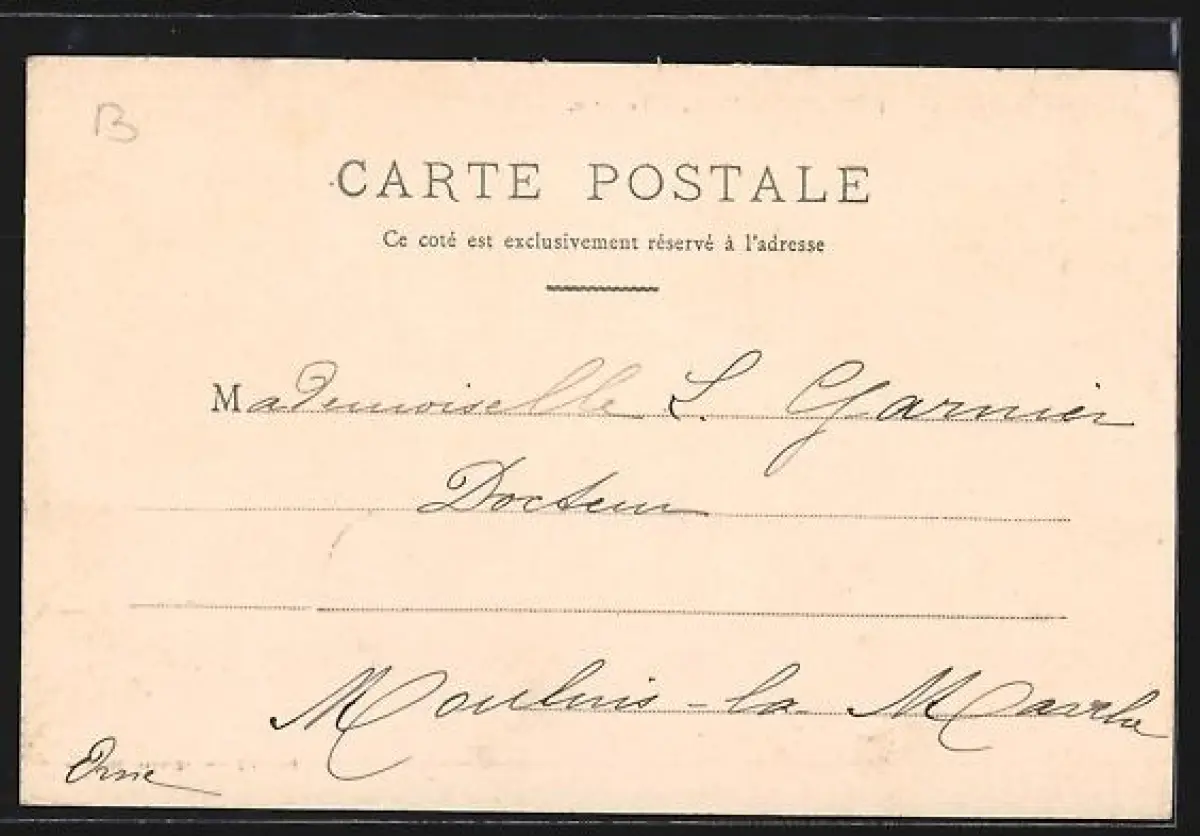 B
CARTE POSTALE
Ce coté est exclusivement réservé à l'adresse
Mademoiselle L. Garnier
Docteur
Moulins-la Marche
Orne